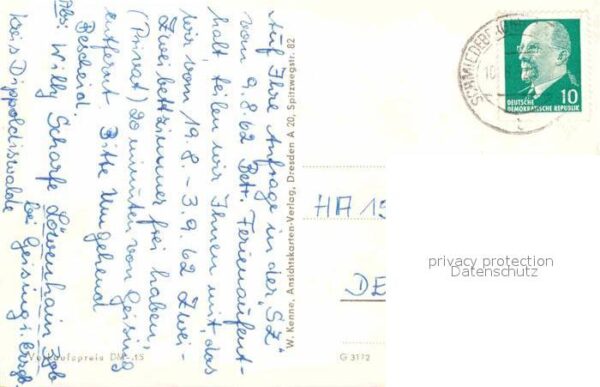 Auf Ihre Anfrage in der "SZ"
vom 9.8.62 Betr. Ferienaufent-
halt, teilen wir Ihnen mit, das
wir vom 19.8.-3.9.62 Zwei-
Zweibettzimmer frei haben,
(Privat) 20 minuten von Geising
entfernt Bitte Umgehend
Bescheid.
Abs: Willy Scharfe Löwenhain
bei Geising i. Erzgb.
Kreis Dippoldiswalde
Verkaufspreis DM -,15
"W. Kenne, Ansichtskarten-Verlag, Dresden A 20, Spitzwegstr. 82
G 3172
SCHMIEDEBERG
10
DEUTSCHE
DEMOKRATISCHE REPUBLIK
10
HA 19
DE
privacy protection
Datenschutz